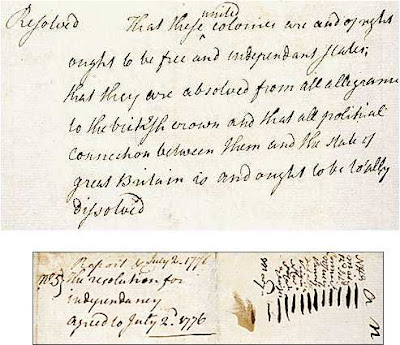 Resolved That these united colonies are and of right
ought to be free and independant states,
that they are absolved from all allegiance
to the british crown and that all political
connection between them and the state of
great Britain is and ought to be totally
dissolved
Report July 2. 1776
No 5 The resolution for
independancy
agreed to July 2d. 1776
a n